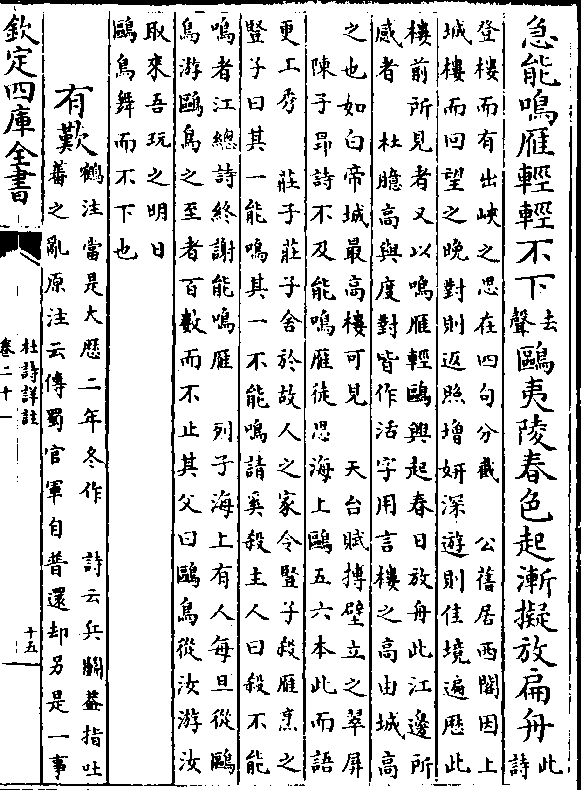 急能鳴雁輕輕不下去聲鷗夷陵春色起漸擬放扁舟此詩
登樓而有出峽之思在四句分截　公舊居西閣因上
城樓而回望之晚對則返照增妍深遊則佳境遍歷此
樓前所見者又以鳴雁輕鷗興起春日放舟此江邊所
感者　杜臆高與度對皆作活字用言樓之高由城高
之也如白帝城最高樓可見　天台賦搏壁立之翠屏
陳子昻詩不及能鳴雁徒思海上鷗五六本此而語
更工秀　莊子莊子舍於故人之家令豎子殺雁烹之
豎子曰其一能鳴其一不能鳴請奚殺主人曰殺不能
鳴者江總詩終謝能鳴雁　列子海上有人每旦從鷗
鳥游鷗鳥之至者百數而不止其父曰鷗鳥從汝游汝
取來吾玩之明日
鷗鳥舞而不下也
有歎鶴注當是大歷二年冬作　詩云兵鬭蓋指吐
蕃之亂原注云傳蜀官軍自普還却另是一事
欽定四庫全書
杜詩詳註
卷二十一
十五